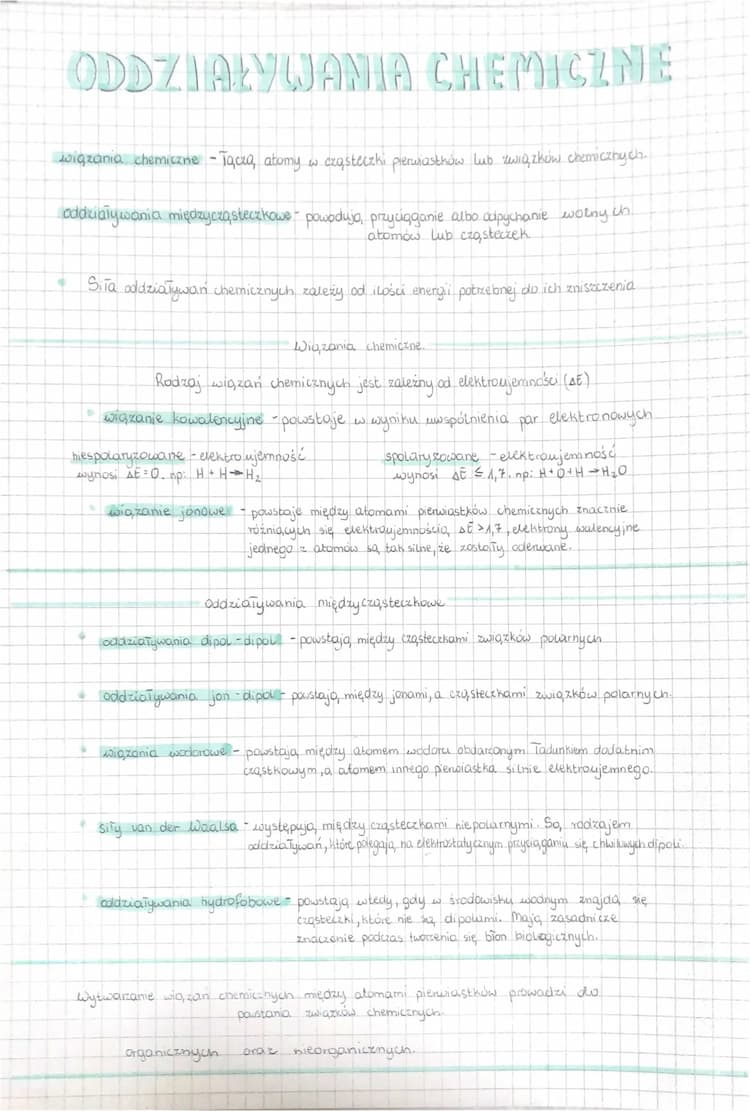 ODDZIAŁYWANIA CHEMICZNE
wiązania chemiczne - łączą atomy w cząsteczki pierwiastków lub związków chemicznych.
oddziaływania międzycząsteczkowe - powodują przyciąganie albo odpychanie wolnych
atomów lub cząsteczek
Siła oddziaływań chemicznych zależy od ilości energii potrzebnej do ich zniszczenia
Wiązania chemiczne.
Rodzaj wiązań chemicznych jest zależny od elektroujemności (ΔE)
wiązanie kowalencyjne - powstaje w wyniku uwspólnienia par elektronowych
niespolaryzowane - elektroujemność
wynosi ΔE = 0. np: H + H → H₂
spolaryzowane - elektroujemność
wynosi ΔE ≤ 1,7. np: H+O+H → H₂O
wiązanie jonowe - powstaje między atomami pierwiastków chemicznych znacznie
różniących się elektroujemnością ΔE > 1,7, elektrony walencyjne
jednego z atomów są tak silne, że zostały oderwane.
Oddziaływania międzycząsteczkowe
oddziaływania dipol - dipol - powstają między cząsteczkami związków polarnych
oddziaływania jon - dipol - powstają między jonami, a cząsteczkami związków polarnych.
wiązania wodorowe - powstają między atomem wodoru obdarzonym ładunkiem dodatnim
cząstkowym, a atomem innego pierwiastka silnie elektroujemnego.
siły van der Waalsa - występują między cząsteczkami niepolarnymi. Są rodzajem
oddziaływań, które polegają na elektrostatycznym przyciąganiu się chwilowych dipoli.
oddziaływania hydrofobowe - powstają wtedy, gdy w środowisku wodnym znajdą się
cząsteczki, które nie są dipolami. Mają zasadnicze
znaczenie podczas tworzenia się błon biologicznych.
Wytwarzanie wiązań chemicznych między atomami pierwiastków prowadzi do
powstania związków chemicznych
organicznych oraz nieorganicznych.